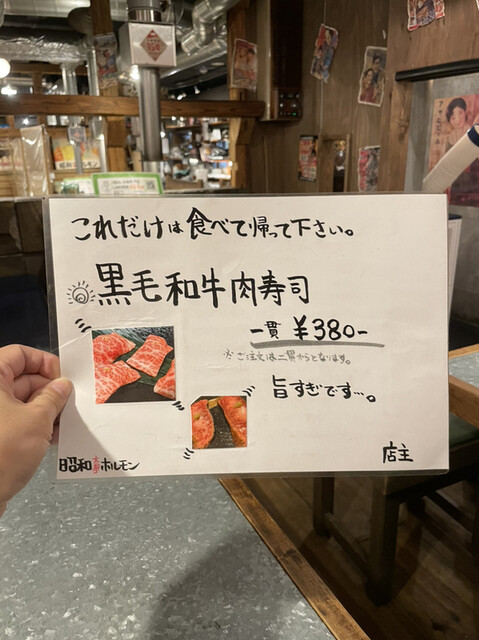 これだけは食べて帰って下さい。
黒毛和牛肉寿司
一貫 ¥380-
※ご注文は二貫からとなります。
旨すぎです…。
昭和ホルモン
店主